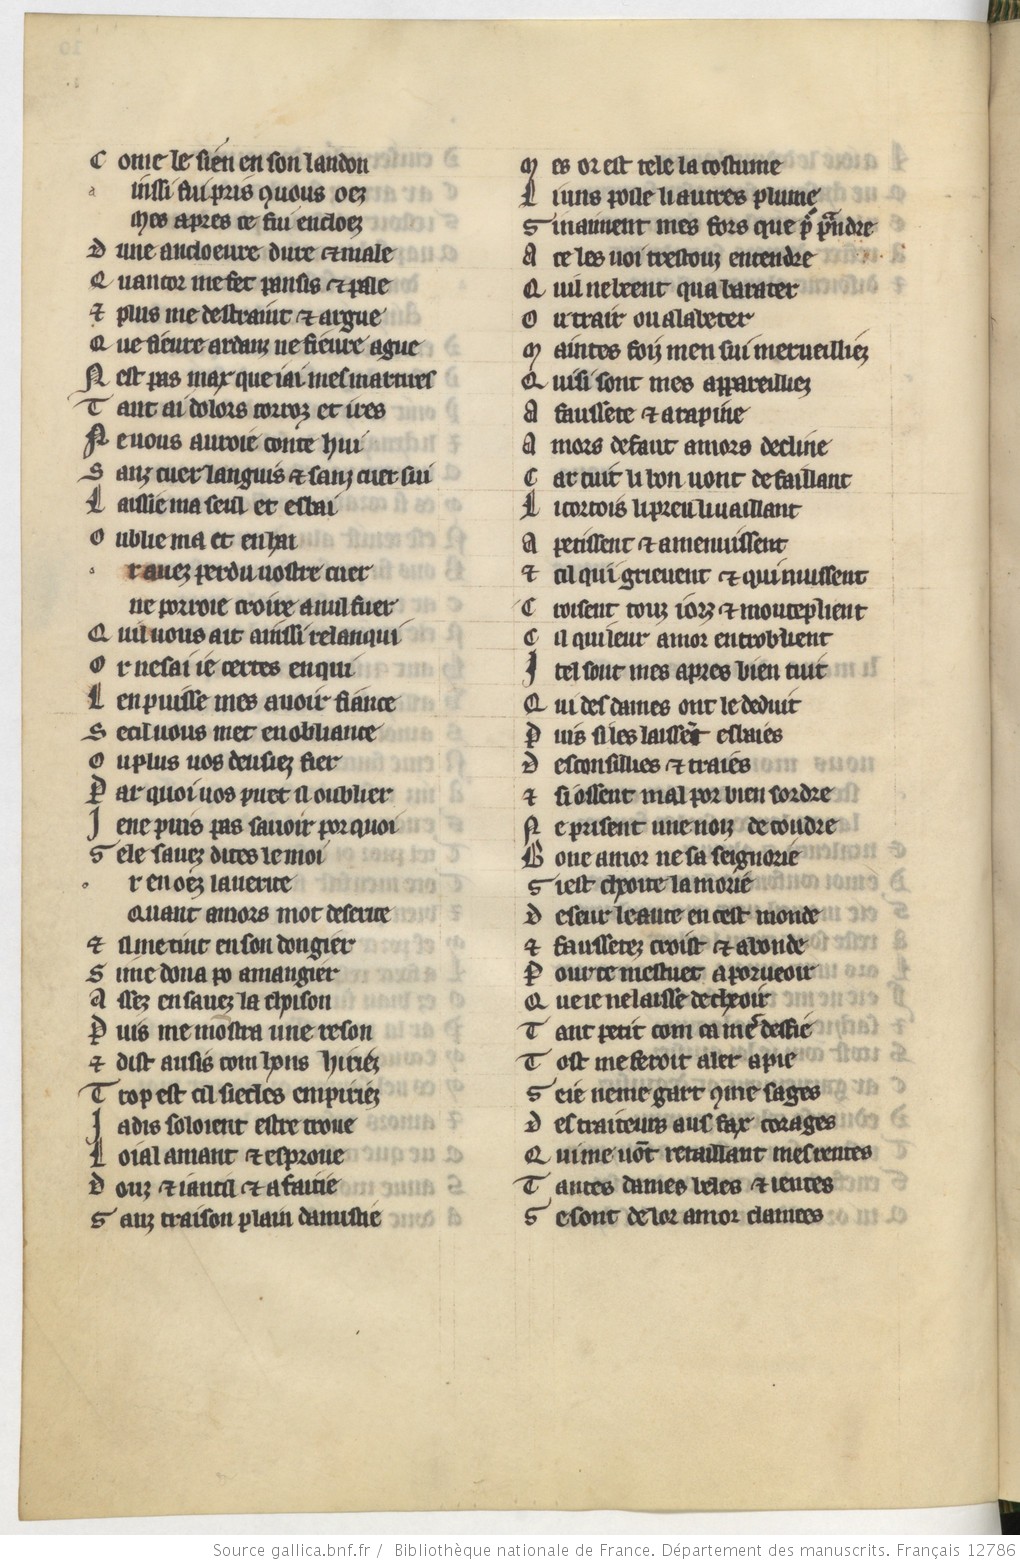 C ome le sien en son landon
a insi fui pris qͥuous oez
Mes apres ce fui encloez
D une encloeure dure ⁊ male
Q uancor me fet pensis ⁊ pale
⁊ plus me destraint ⁊ argue
Q ue fieure ardanz ne fieure ague
N est pas max que iai mes martires
T ant ai dolors corroz et ires
N e uous auroie conte hui
S anz cuer languis ⁊ sanz cuer sui
L aissie ma seul et esbai
O ublie ma et enhai
r auez perdu uostre cuer
ne porroie croire a nul fuer
Q uil uous ait ainssi relanqui
O r ne sai ie certes en qui
L en puisse mes auoir fiance
S e cil uous met en obliance
O u plus uos deusiez fier
P ar quoi uos puet il oublier
J e ne puis pas sauoir por quoi
S e le sauez dites le moi
r en oez la uerite
Quant amors mot deserite
⁊ il me tint en son dongier
S i me dona po a mangier
A ssez en sauez la choison
P uis me mōstra une reson
⁊ dist ausis com hons hiriez
T rop est cil siecles empiriez
J adis soloient estre troue
L oial amant ⁊ esproue
D ouz ⁊ iantil ⁊ afaitie
S anz traison plain damistie
M es or est tele la costume
L i uns poile li autres plume
S i naiment mes fors que p̄ p̄ndre
A ce les uoi trestouz entendre
Q uil ne beent qua barater
O u trair ou a labeter
M aintes foiz men sui merueilliez
Q uisi sont mes appareilliez
A faussete ⁊ a rapine
A mors defaut amors decline
C ar tuit li bon uont defaillant
L i cortois li preu li uaillant
A petissent ⁊ amenuissent
⁊ cil qui grieuent ⁊ qui nuissent
C roisent touz iorz ⁊ monteplient
C il qui leur amor entroblient
J tel sont mes apres bien tuit
Q ui des dames ont le deduit
P uis si les laissēt esbaies
D esconsillies ⁊ traies
⁊ si ossent mal por bien sordre
N e prisent une noiz de coudre
B one amor ne sa seignorie
S i est cheoite la morie
D e seur leaute en cest monde
⁊ faussetez croist ⁊ abonde
P our ce mestuet a porueoir
Q ue ie ne laisse decheoir
T ant petit com ca mer̄ desfie
T ost me feroit aler a pie
S e ie ne me gart qͥme sages
D es traiteurs aus fax corages
Q ui me uōt retaillant mes rentes
T antes dames beles ⁊ ientes
S e sont de lor amor claintes